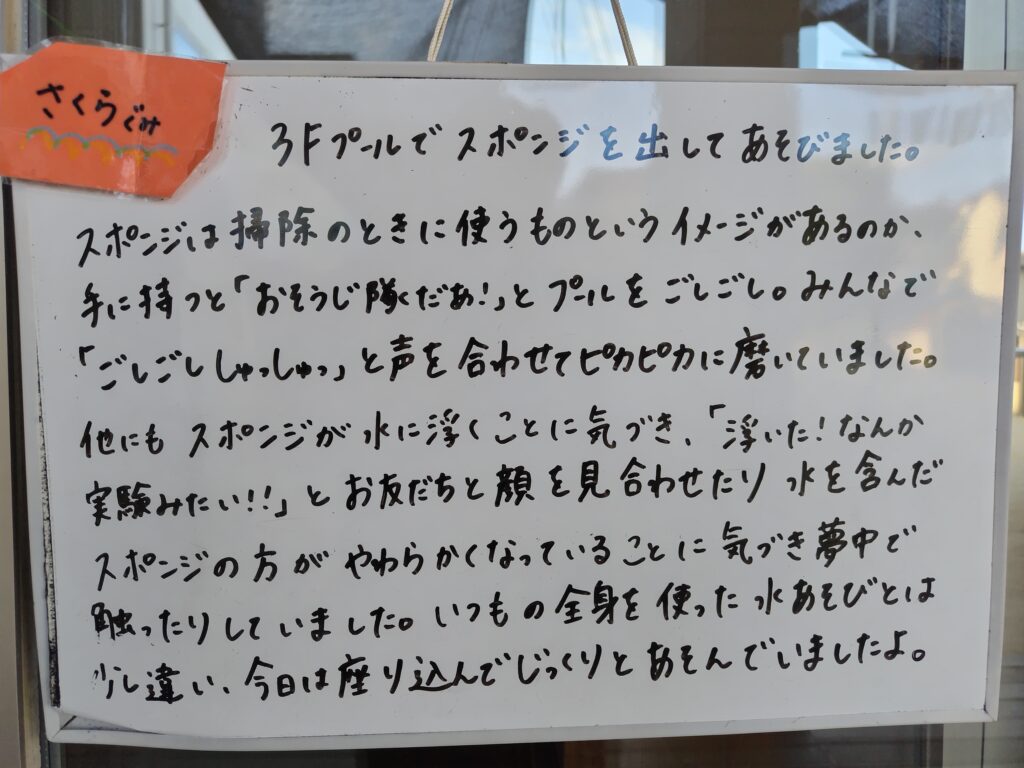 さくらぐみ
3Fプールでスポンジを出してあそびました。
スポンジは掃除のときに使うものというイメージがあるのか、
手に持つと「おそうじ隊だあ!」とプールをごしごし。みんなで
「ごしごししゅっしゅっ」と声を合わせてピカピカに磨いていました。
他にもスポンジが水に浮くことに気づき、「浮いた!なんか
実験みたい!!」とお友だちと顔を見合わせたり水を含んだ
スポンジの方がやわらかくなっていることに気づき夢中で
触ったりしていました。いつもの全身を使った水あそびとは
少し違い、今日は座り込んでじっくりとあそんでいましたよ。